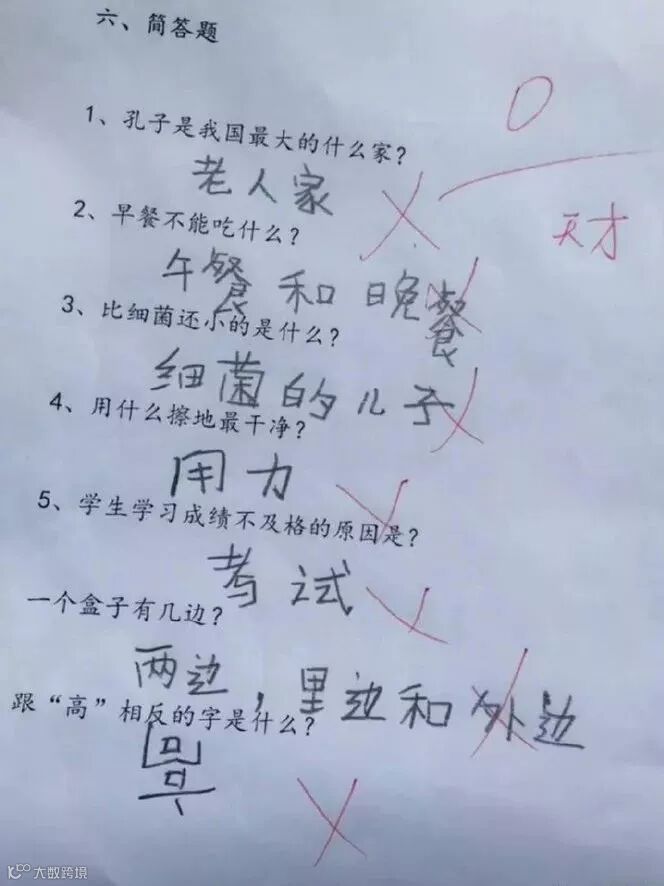 六、简答题
0
1、孔子是我国最大的什么家？
老人家
天才
2、早餐不能吃什么？
午餐和晚餐
3、比细菌还小的是什么？
细菌的儿子
4、用什么擦地最干净？
用力
5、学生学习成绩不及格的原因是？
考试
一个盒子有几边？
两边，里边和外边
跟“高”相反的字是什么？
大数跨境